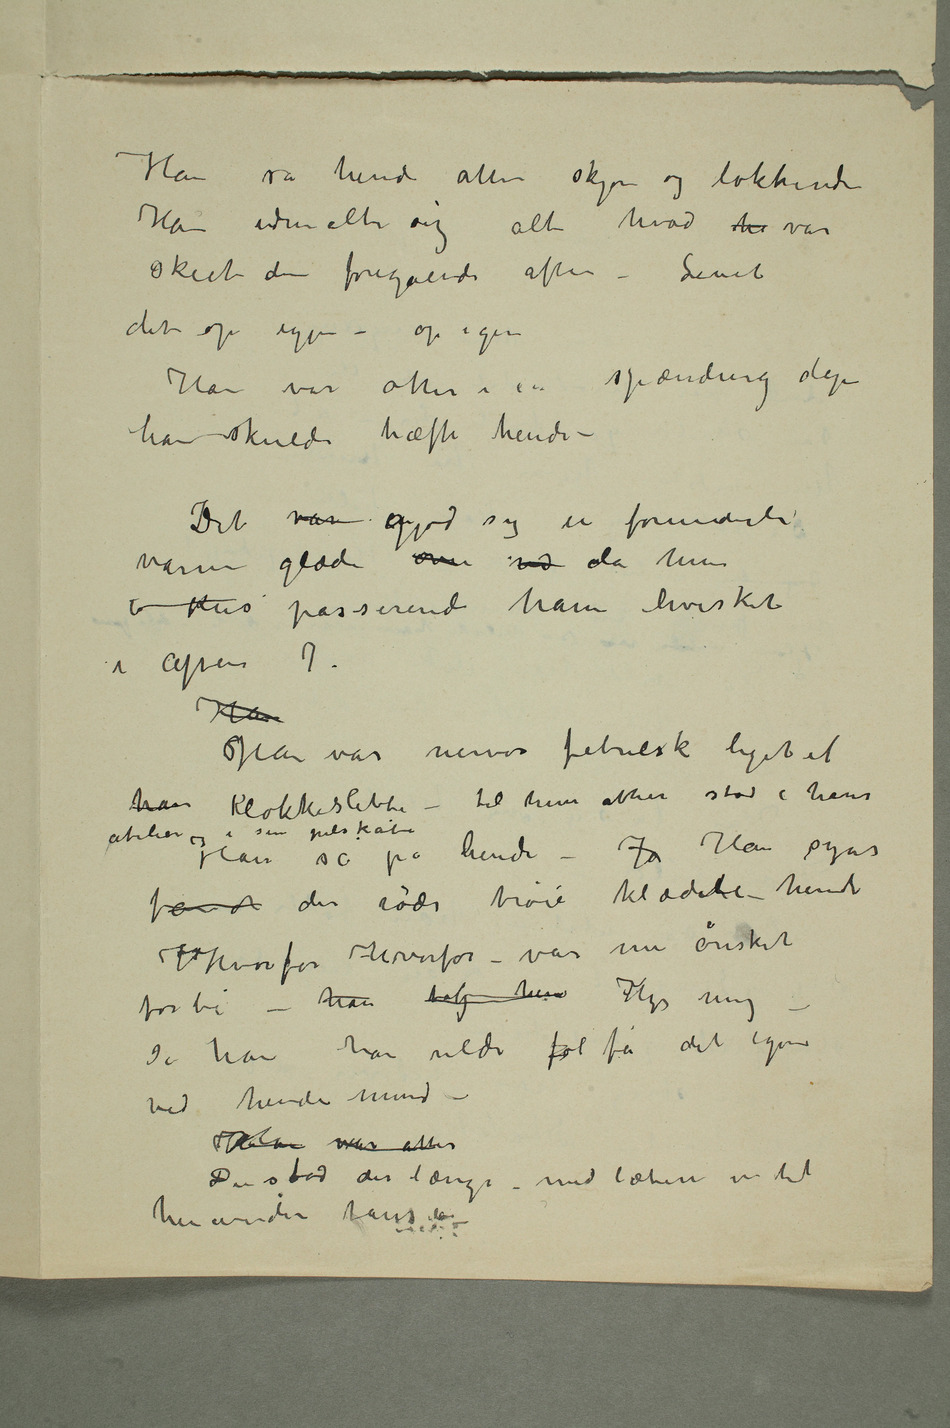 Han så hende atter skjøn og lokkende
Han udmalte sig alt hvad ha var
skeet den foregående aften – Levet
det op igjen – op igen
Han var atter i en spænding da
han skulde træffe hende –
Det var gjød sig en forunderlig
varm glæde over ved da hun
passerende ham hvisket
i aften 7.
Han
Han var nervøs febrilsk liget et
han Klokkeslettet – til hun atter stod i hans
atelier og i sin pelskåbe
Han så på hende – Ja Han synes
fandt den røde trøie klædte hende
Hvorfor Hvorfor – var nu ønsket
forbi – han tog hen Kys mig –
Så han han vilde føl få det igjen
ved hendes mund –
Han var atter
De stod der længe – med læberne til
hverandre taus